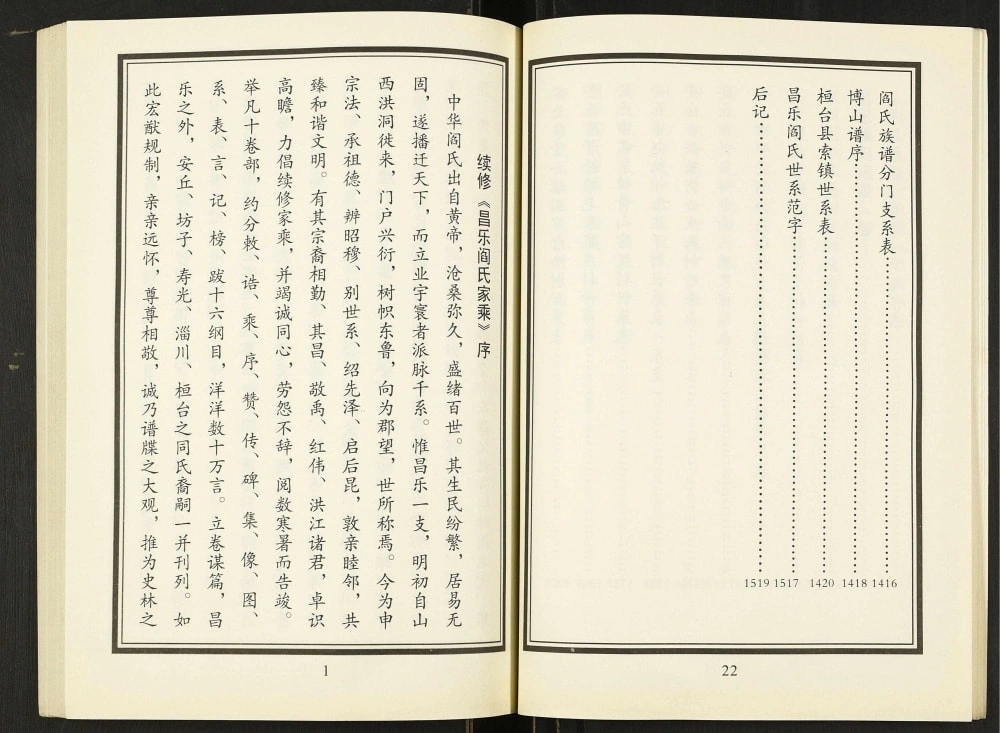 阎氏族谱分门支系表……1416
博山谱序……1418
桓台县索镇世系表……1420
昌乐阎氏世系范字……1517
后记……1519
22
续修《昌乐阎氏家乘》序
中华阎氏出自黄帝，沧桑弥久，盛绪百世。其生民纷繁，居易无
固，遂播迁天下，而立业宇寰者派脉千系。惟昌乐一支，明初自山
西洪洞徙来，门户兴衍，树帜东鲁，向为郡望，世所称焉。今为申
宗法、承祖德、辨昭穆、别世系、绍先泽、启后昆，敦亲睦邻，共
臻和谐文明。有其宗裔相勤、其昌、敬禹、红伟、洪江诸君，卓识
高瞻，力倡续修家乘，并竭诚同心，劳怨不辞，阅数寒暑而告竣。
举凡十卷部，约分敕、诰、乘、序、赞、传、碑、集、像、图、
系、表、言、记、榜、跋十六纲目，洋洋数十万言。立卷谋篇，昌
乐之外，安丘、坊子、寿光、淄川、桓台之同氏裔嗣一并刊列。如
此宏猷规制，亲亲远怀，尊尊相敬，诚乃谱牒之大观，推为史林之
1